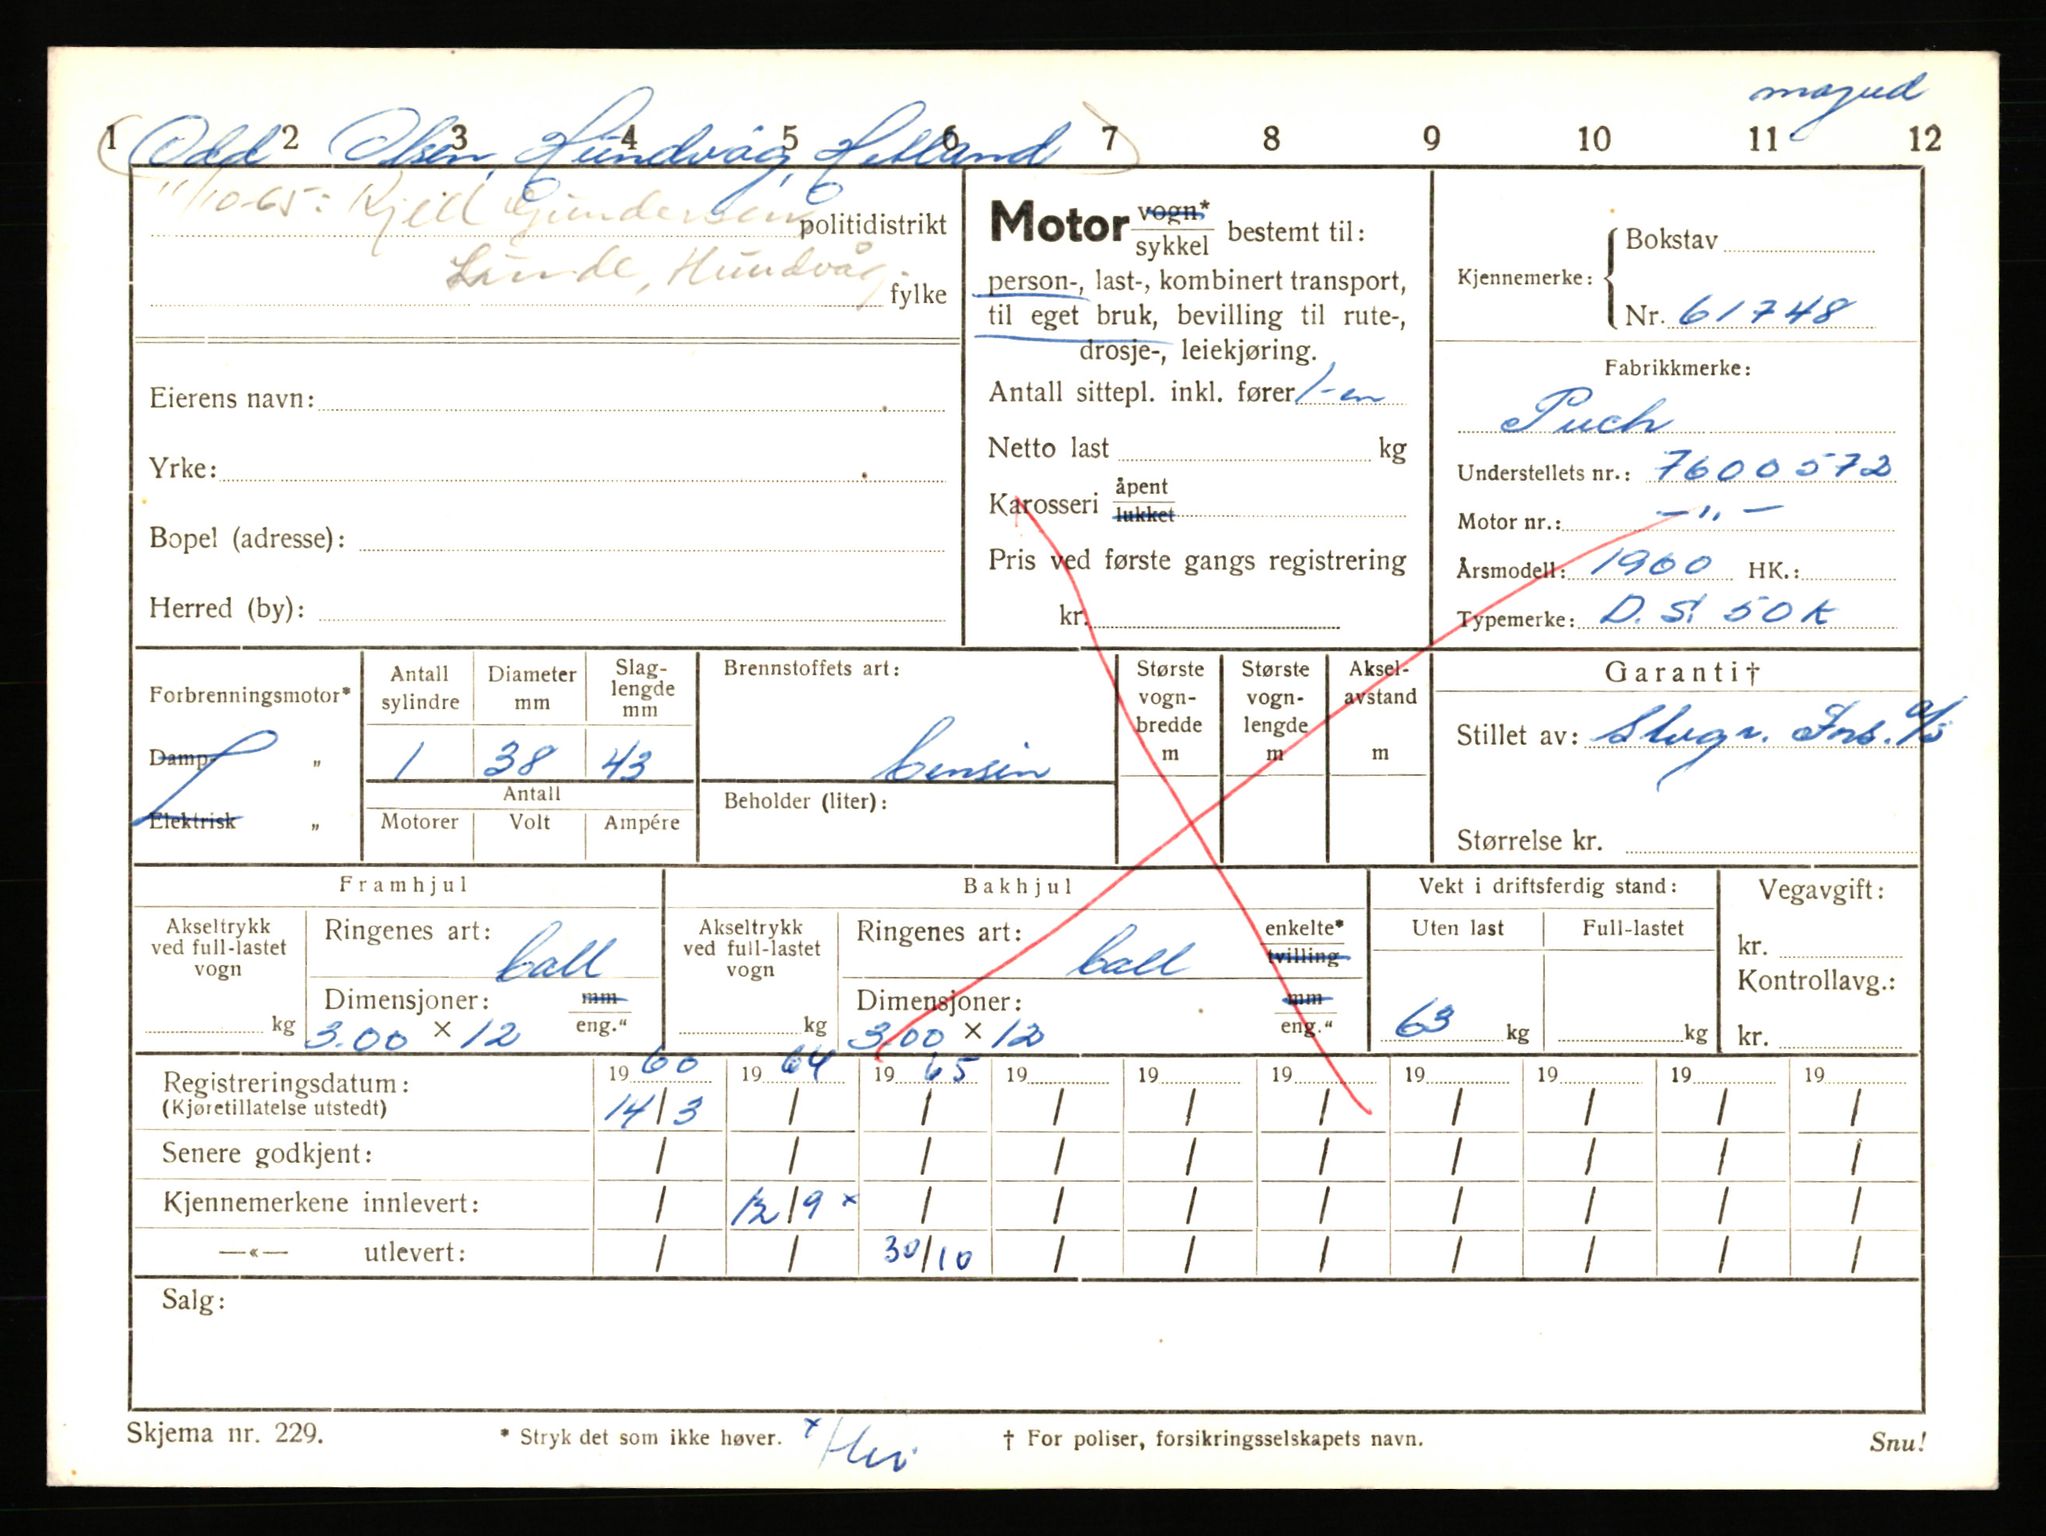 mazud
1 2 3 4 5 6 7 8 9 10 11 12
(Odd Olsen, Hundvåg, Hetland)
11/10-65: Kjell Gundersen politidistrikt
Lunde, Hundvåg. fylke
Eierens navn:
Yrke:
Bopel (adresse):
Herred (by):
Motor vogn* / sykkel bestemt til:
person-, last-, kombinert transport,
til eget bruk, bevilling til rute-,
drosje-, leiekjøring.
Antall sittepl. inkl. fører 1-en
Netto last kg
Karosseri åpent / lukket
Pris ved første gangs registrering
kr.
Kjennemerke: Bokstav
Nr. 61748
Fabrikkmerke:
Puch
Understellets nr.: 7600572
Motor nr.: -"-
Årsmodell: 1960 HK.:
Typemerke: D.S. 50 K
Forbrenningsmotor*
Damp "
Elektrisk "
Antall sylindre Diameter mm Slaglengde mm
1 38 43
Antall
Motorer Volt Ampére
Brennstoffets art:
bensin
Beholder (liter):
Største vognbredde m Største vognlengde m Akselavstand m
Garanti†
Stillet av: Stvgr. Fors. A/S
Størrelse kr.
Framhjul
Akseltrykk ved full-lastet vogn kg
Ringenes art: ball
Dimensjoner: mm / eng."
3.00 × 12
Bakhjul
Akseltrykk ved full-lastet vogn kg
Ringenes art: ball enkelte* / tvilling
Dimensjoner: mm / eng."
3.00 × 12
Vekt i driftsferdig stand:
Uten last Full-lastet
63 kg kg
Vegavgift:
kr.
Kontrollavg.:
kr.
Registreringsdatum: 19 60 19 64 19 65 19 19 19 19 19 19 19
(Kjøretillatelse utstedt) 14/3 / / / / / / / / /
Senere godkjent: / / / / / / / / / /
Kjennemerkene innlevert: / 12/9 x / / / / / / / /
—«— utlevert: / / 30/10 / / / / / / /
Salg:
Skjema nr. 229. * Stryk det som ikke høver. x † For poliser, forsikringsselskapets navn. Snu!